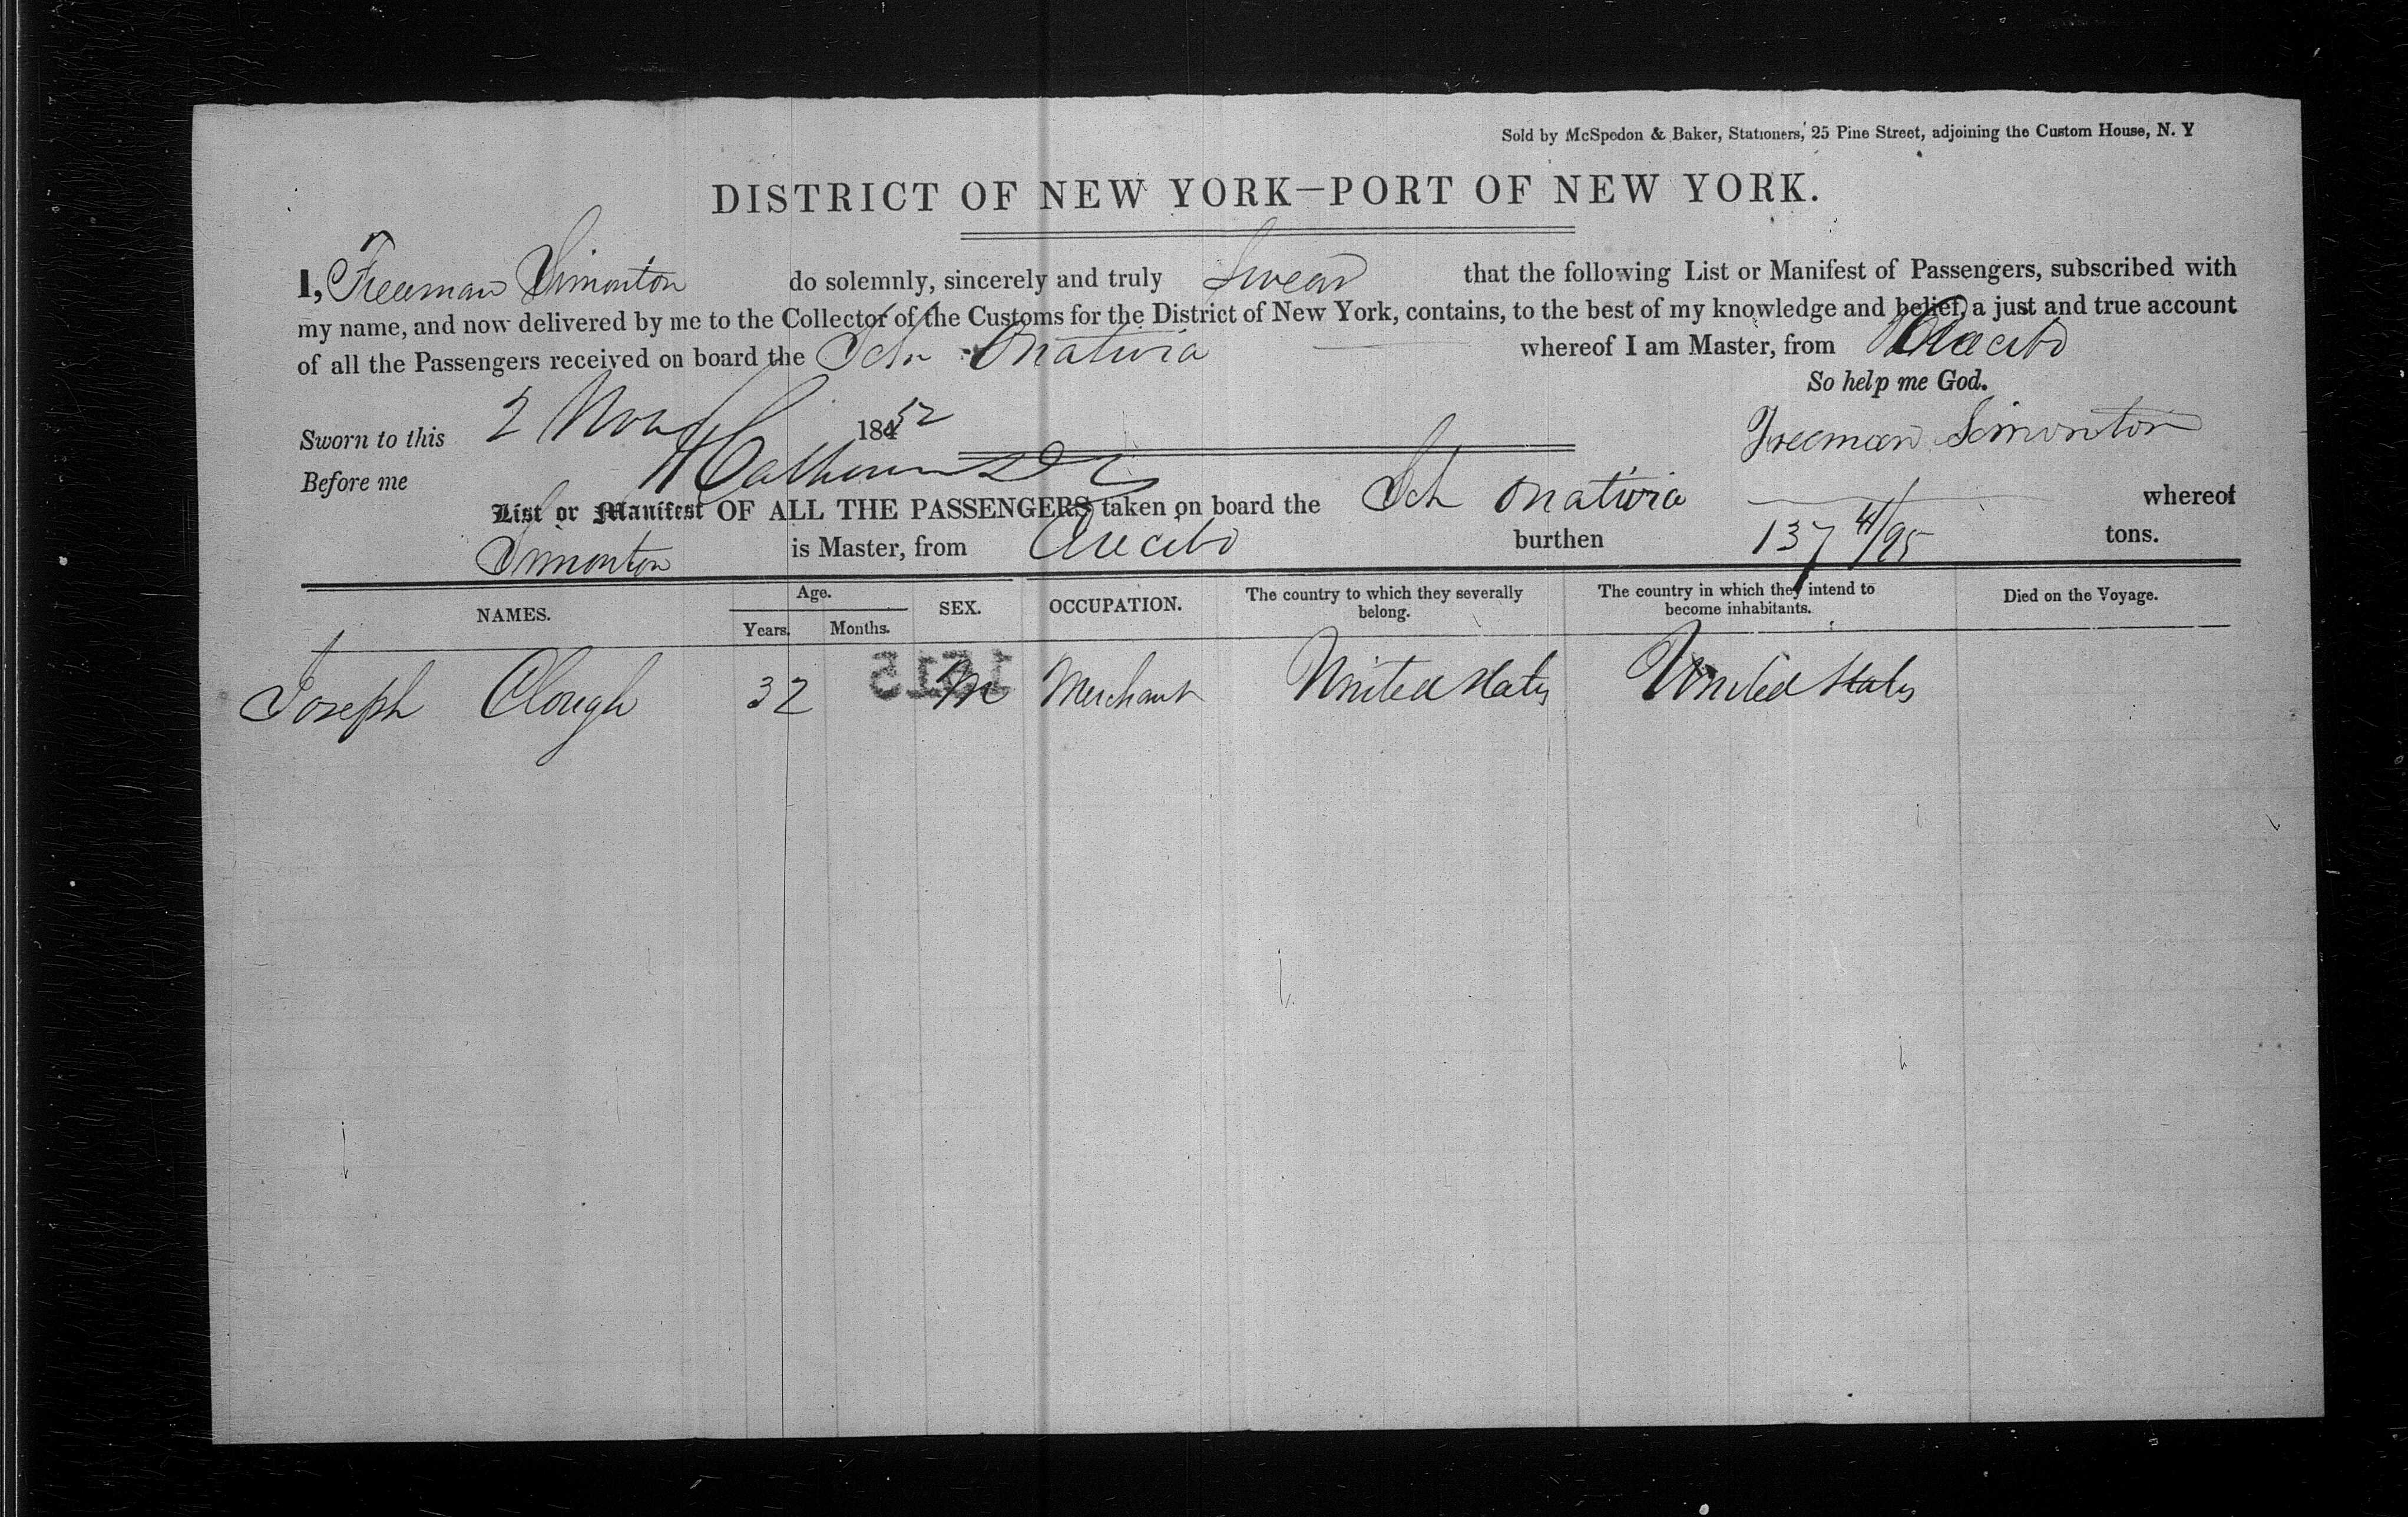 Sold by McSpedon & Baker, Stationers, 25 Pine Street, adjoining the Custom House, N. Y
DISTRICT OF NEW YORK—PORT OF NEW YORK.
I, Freeman Simonton do solemnly, sincerely and truly Swear that the following List or Manifest of Passengers, subscribed with
my name, and now delivered by me to the Collector of the Customs for the District of New York, contains, to the best of my knowledge and belief, a just and true account
of all the Passengers received on board the Sch Onativia whereof I am Master, from Arecibo
So help me God.
Sworn to this 2 Nov 1852 Freeman Simonton
Before me Calhoun
List or Manifest OF ALL THE PASSENGERS taken on board the Sch Onativia whereof
Simonton is Master, from Arecibo burthen 137 41/95 tons.
NAMES. Age. Years. Months. SEX. OCCUPATION. The country to which they severally belong. The country in which they intend to become inhabitants. Died on the Voyage.
Joseph Clough 32 M Merchant United States United States